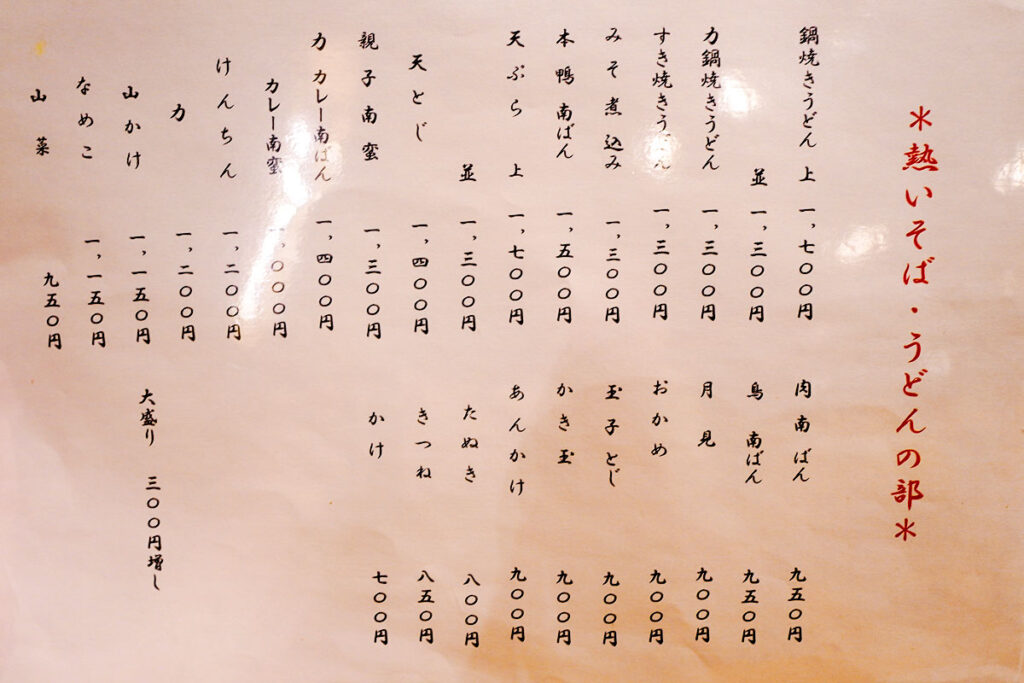 ＊熱いそば・うどんの部＊
鍋焼きうどん 上 一,七〇〇円
並 一,三〇〇円
力鍋焼きうどん 一,三〇〇円
すき焼きうどん 一,三〇〇円
みそ煮込み 一,三〇〇円
本鴨南ばん 一,五〇〇円
天ぷら 上 一,七〇〇円
並 一,三〇〇円
天とじ 一,四〇〇円
親子南蛮 一,三〇〇円
力カレー南ばん 一,四〇〇円
カレー南蛮 一,〇〇〇円
けんちん 一,二〇〇円
力 一,二〇〇円
山かけ 一,一五〇円
なめこ 一,一五〇円
山菜 九五〇円
肉南ばん 九五〇円
鳥南ばん 九五〇円
月見 九〇〇円
おかめ 九〇〇円
玉子とじ 九〇〇円
かき玉 九〇〇円
あんかけ 九〇〇円
たぬき 八〇〇円
きつね 八五〇円
かけ 七〇〇円
大盛り 三〇〇円増し